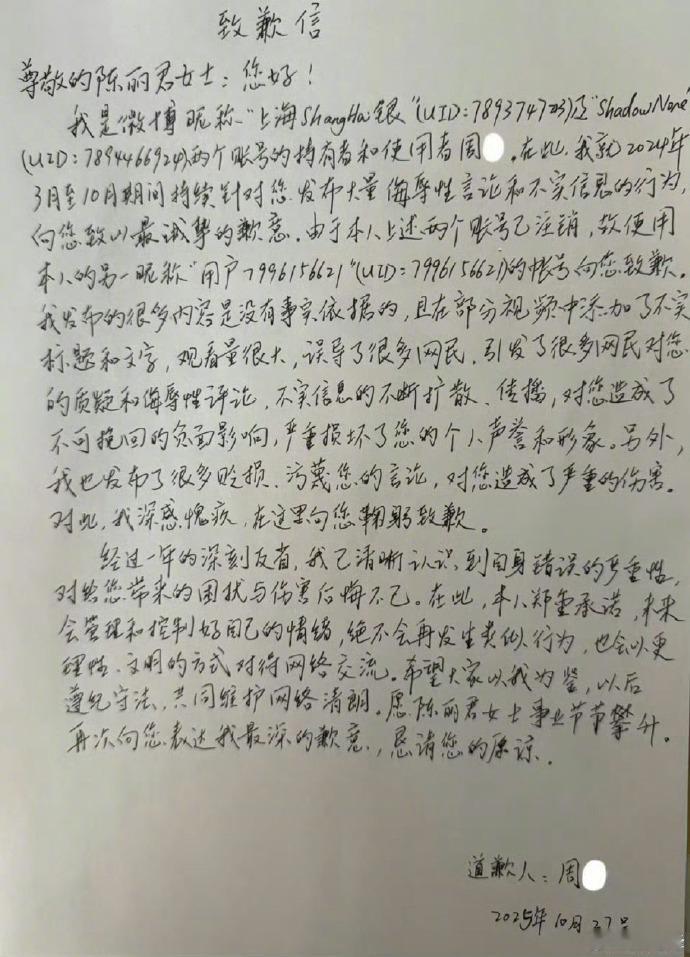 致歉信
尊敬的陈丽君女士：您好！
我是微博昵称“上海ShangHai银”(UID:7893747213)及“ShadowNone”
(UID:7894466924)两个账号的持有者和使用者周 。在此，我就2024年
3月至10月期间持续针对您发布大量侮辱性言论和不实信息的行为，
向您致以最诚挚的歉意。由于本人上述两个账号已注销，故使用
本人的另一昵称“用户7996156621”(UID:7996156621)的帐号向您致歉。
我发布的很多内容是没有事实依据的，且在部分视频中添加了不实
标题和文字，观看量很大，误导了很多网民，引发了很多网民对您
的质疑和侮辱性评论，不实信息的不断扩散、传播，对您造成了
不可挽回的负面影响，严重损坏了您的个人声誉和形象。另外，
我也发布了很多贬损、污蔑您的言论，对您造成了严重的伤害。
对此，我深感愧疚，在这里向您鞠躬致歉。
经过一年的深刻反省，我已清晰认识到自身错误的严重性，
对给您带来的困扰与伤害后悔不已。在此，本人郑重承诺，未来
会管理和控制好自己的情绪，绝不会再发生类似行为，也会以更
理性、文明的方式对待网络交流。希望大家以我为鉴，以后
遵纪守法，共同维护网络清朗。愿陈丽君女士事业节节攀升。
再次向您表达我最深的歉意，恳请您的原谅。
道歉人：周
2025年10月27号